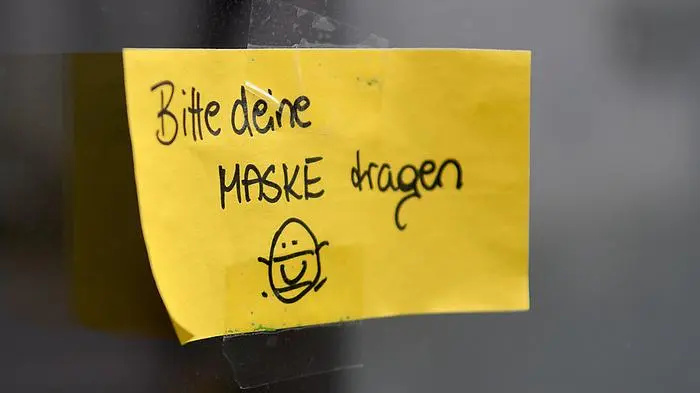 Bitte deine
MASKE tragen